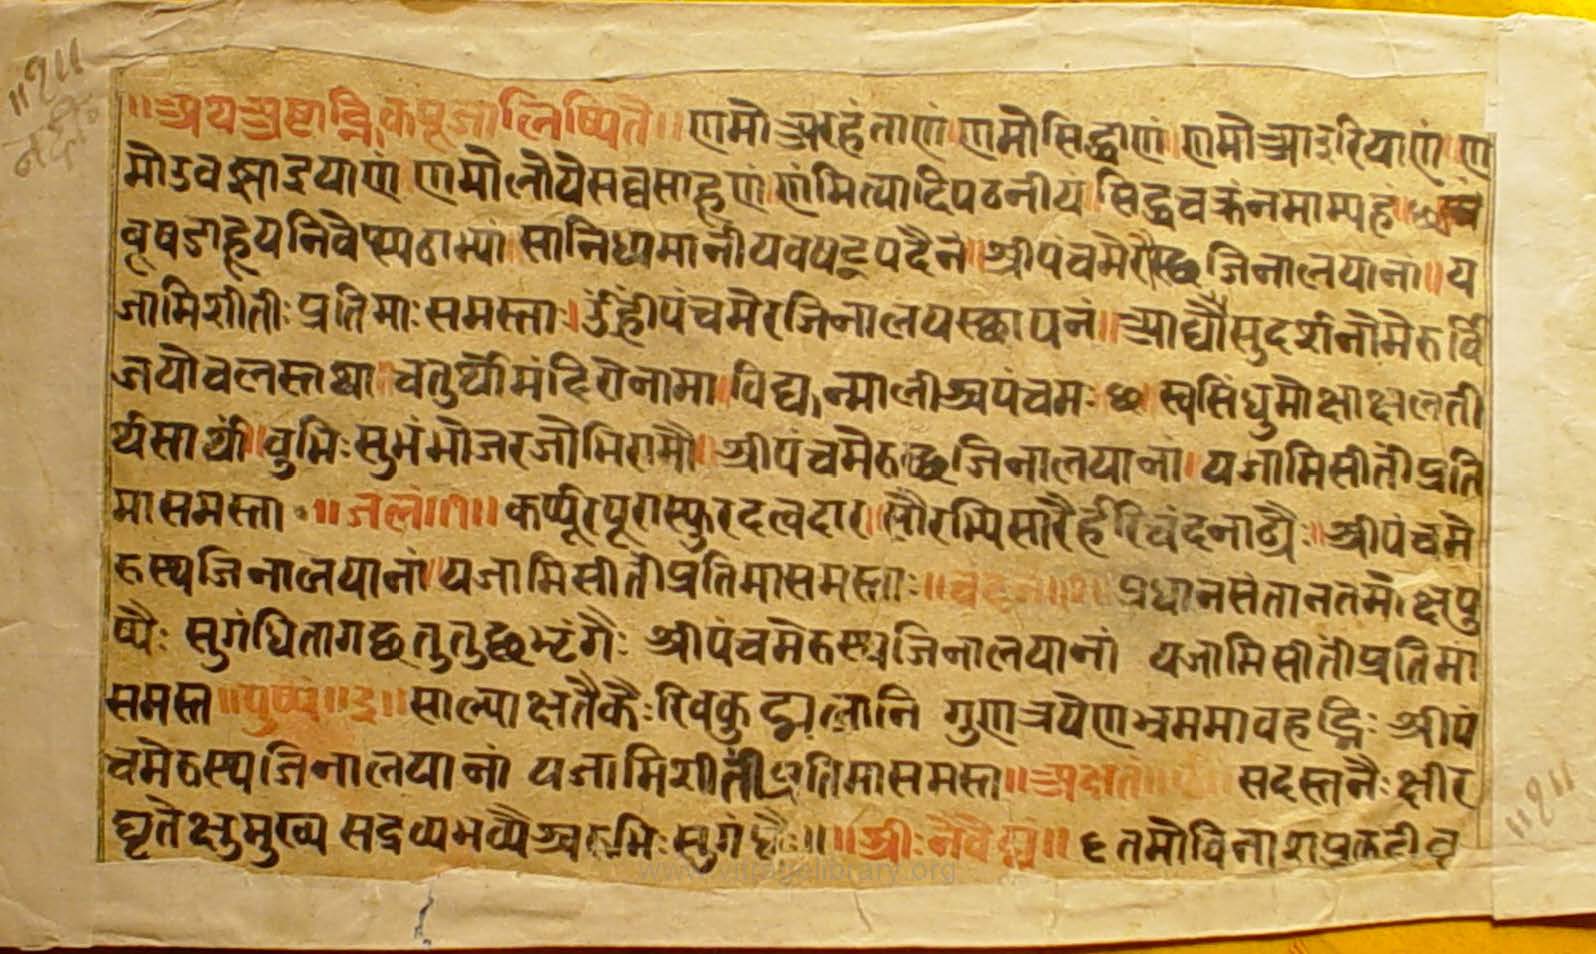 ॥१॥
नदी॰
॥अथअष्टाह्निकपूजालिष्यिते॥ णमोअरहंताणं॥णमोसिद्धाणं॥णमोआइरियाणं॥ण
मोउवझाइयाणं॥णमोलोयेसव्वसाहूणं॥णंमित्यादिपठनीयं॥सिद्धचक्रंनमाम्यहं॥छ॥
निवेष्यठाभ्यां॥सानिध्यमानीयवषट्पदैनं॥श्रीपंचमेरौस्छजिनालयानां॥य
जामिशीतीःप्रतिमाःसमस्ताः॥उंह्रींपंचमेरजिनालयस्छापनं॥आद्यौसुदर्शनोमेरुर्वि
जयोचलस्तथा॥चतुर्थोमंदिरोनामा॥विद्युन्मालीश्चपंचमः॥छ॥स्वसिंधुमोक्षाक्षलती
र्थसार्थो॥वुभिःसुभंभोजरजोभिरामौ॥श्रीपंचमेरुस्छजिनालयानां॥यजामिसीतीप्रति
मासमस्ता॰॥जलं॥१॥कर्प्पूरपूरास्फुरदत्वदार॥सौरम्यिसारैर्हरिचंदनाढ्यैः॥श्रीपंचमे
रुस्थजिनालयानां॥यजामिसीतीप्रतिमासमस्ताः॥चंदनं॥२॥प्रधानसंतानतमंोक्षपु
ष्पैः सुगंधितागछतुतुछभृंगैः श्रीपंचमेरुस्थजिनालयानां यजामिसीतींप्रतिमा
समस्त॥पुष्पं॥३॥साल्याक्षतैकैःरिवकुद्मलानि गुणत्रयेणभ्रममावहद्भिः श्रीपं
चमेरुस्थजिनालयानां यजामिशीतींप्रतिमासमस्ता॥अक्षतं॥४॥सदस्तनैःक्षीर
घृतेक्षुमुख्यसद्रव्यभव्यैश्चरुभिःसुगंधैः॥॥श्रीःनैवेद्यं॥६तमोविनाशप्रकटीकृ
॥१॥
www.vitragelibrary.org